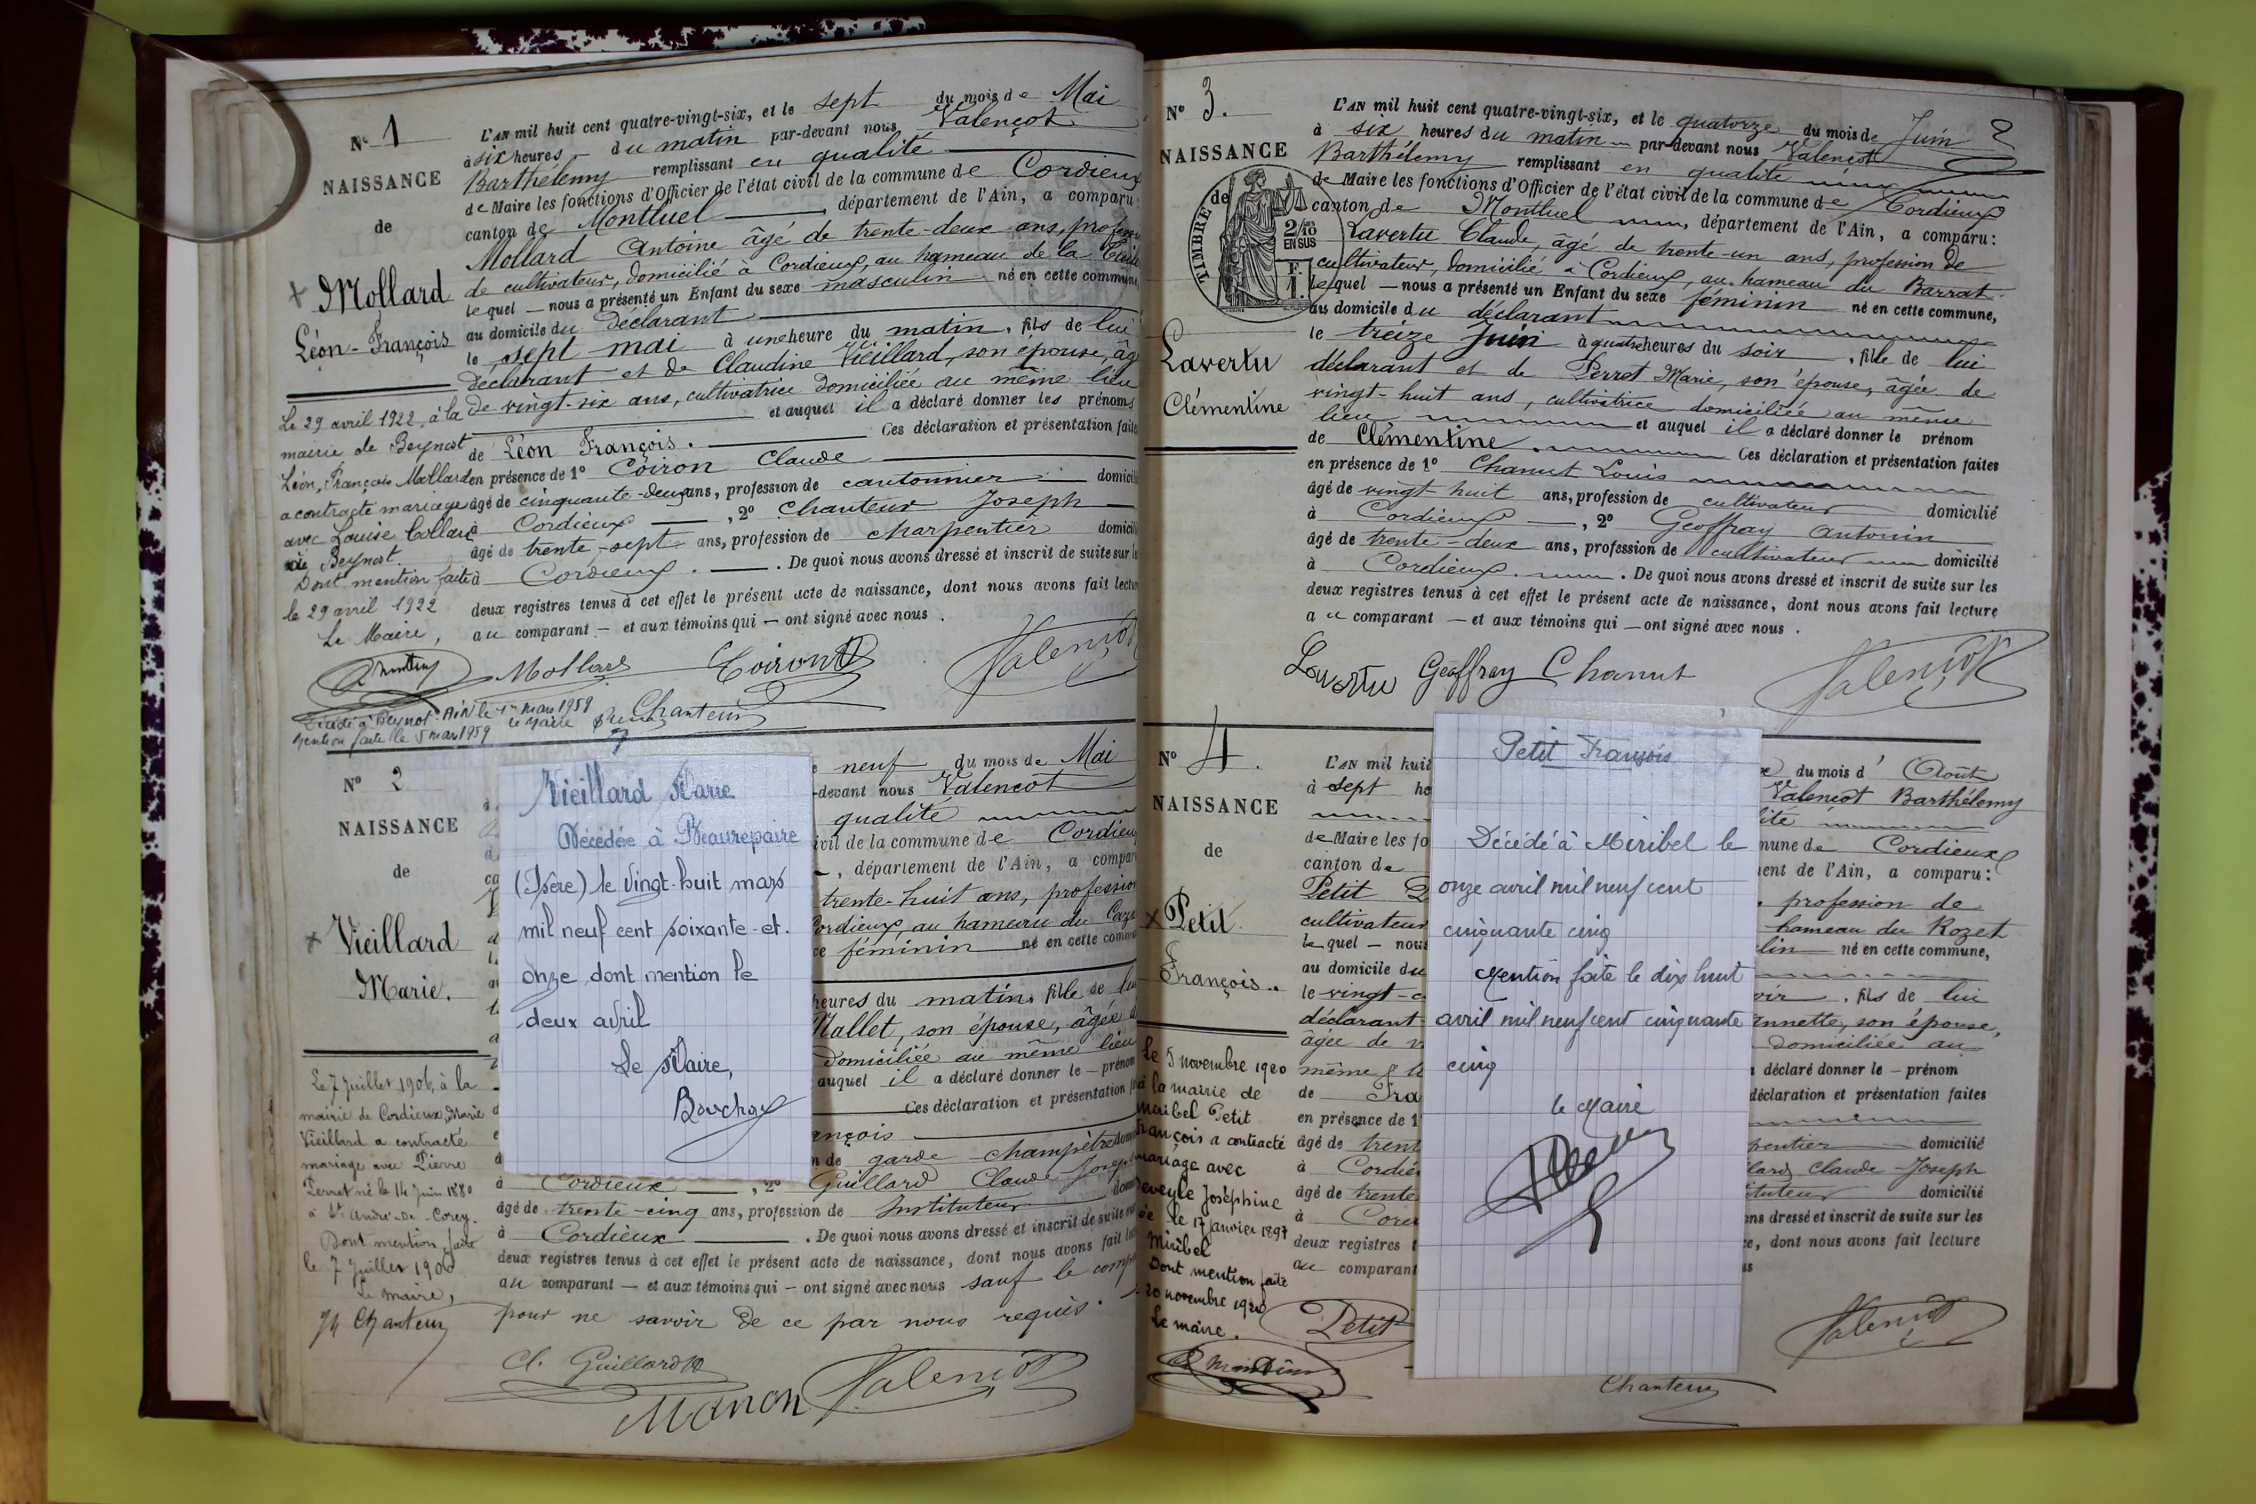 N° 1
NAISSANCE
de
Mollard
Léon-François
L'AN mil huit cent quatre-vingt-six, et le sept du mois de Mai
à six heures du matin par-devant nous Valençot
Barthélemy remplissant en qualité
de Maire les fonctions d'Officier de l'état civil de la commune de Cordieux
canton de Montluel, département de l'Ain, a comparu:
Mollard Antoine âgé de trente-deux ans, profession
de cultivateur, domicilié à Cordieux, au hameau de la
lequel — nous a présenté un Enfant du sexe masculin né en cette commune,
au domicile du déclarant
le sept mai à une heure du matin, fils de lui
déclarant et de Claudine Vieillard, son épouse, âgée
de vingt-six ans, cultivatrice domiciliée au même lieu
et auquel il a déclaré donner les prénoms
de Léon François. Ces déclaration et présentation faites
en présence de 1° Coiron Claude
âgé de cinquante-deux ans, profession de cantonnier domicilié
à Cordieux, 2° Chanteur Joseph
âgé de trente-sept ans, profession de charpentier domicilié
à Cordieux. De quoi nous avons dressé et inscrit de suite sur les
deux registres tenus à cet effet le présent acte de naissance, dont nous avons fait lecture
au comparant — et aux témoins qui — ont signé avec nous.
Mollard Coiron Valençot
Chanteur
Le 29 avril 1922, à la
mairie de Beynost
Léon, François Mollard
a contracté mariage
avec Louise Collard
à Beynost.
Dont mention faite
le 29 avril 1922
Le Maire,
Décédé à Beynost-Ain le 1er mars 1959
Mention faite le 5 mars 1959 le Maire
N° 2
NAISSANCE
de
Vieillard
Marie.
neuf du mois de Mai
-devant nous Valençot
qualité
ivil de la commune de Cordieux
, département de l'Ain, a comparu
trente-huit ans, profession
Cordieux, au hameau du
féminin né en cette commune
heures du matin, fille de lui
Mallet, son épouse, âgée de
domiciliée au même lieu
auquel il a déclaré donner le — prénom
Ces déclaration et présentation
ançois
n de garde-champêtre
à Cordieux, 2° Guillard Claude Joseph
âgé de trente-cinq ans, profession de Instituteur
à Cordieux. De quoi nous avons dressé et inscrit de suite sur
deux registres tenus à cet effet le présent acte de naissance, dont nous avons fait
au comparant — et aux témoins qui — ont signé avec nous sauf le
pour ne savoir de ce par nous requis.
Cl. Guillard
Manon Valençot
Vieillard Marie
Décédée à Beaurepaire
(Isère) le vingt-huit mars
mil neuf cent soixante-et-
onze dont mention le
deux avril
Le Maire,
Le 7 Juillet 1906, à la
mairie de Cordieux, Marie
Vieillard a contracté
mariage avec Pierre
Perret né le 14 Juin 1880
à St André-de-Corcy.
Dont mention faite
le 7 Juillet 1906
Le maire,
Jh Chanteur
N° 3.
NAISSANCE
de
TIMBRE
2/10
EN SUS
F.
1.
Lavertu
Clémentine
L'AN mil huit cent quatre-vingt-six, et le quatorze du mois de Juin
à six heures du matin par-devant nous Valençot
Barthélemy remplissant en qualité
de Maire les fonctions d'Officier de l'état civil de la commune de Cordieux
canton de Montluel, département de l'Ain, a comparu:
Lavertu Claude, âgé de trente-un ans, profession de
cultivateur, domicilié à Cordieux, au hameau du Barrat
lequel — nous a présenté un Enfant du sexe féminin né en cette commune,
au domicile du déclarant
le treize Juin à quatre heures du soir, fille de lui
déclarant et de Perret Marie, son épouse, âgée de
vingt-huit ans, cultivatrice domiciliée au même
lieu et auquel il a déclaré donner le prénom
de Clémentine. Ces déclaration et présentation faites
en présence de 1° Chanut Louis
âgé de vingt-huit ans, profession de cultivateur domicilié
à Cordieux, 2° Geoffray Antonin
âgé de trente-deux ans, profession de cultivateur domicilié
à Cordieux. De quoi nous avons dressé et inscrit de suite sur les
deux registres tenus à cet effet le présent acte de naissance, dont nous avons fait lecture
au comparant — et aux témoins qui — ont signé avec nous.
Lavertu Geoffray Chanut Valençot
N° 4.
NAISSANCE
de
Petit
François.
L'AN mil huit du mois d'Août
à sept he Valençot Barthélemy
ité
de Maire les fo mune de Cordieux
canton de ent de l'Ain, a comparu:
Petit profession de
cultivateur hameau du Rozet
lequel — nous lin né en cette commune,
au domicile du
le vingt-c oir, fils de lui
déclarant annette, son épouse,
âgée de v domiciliée au
même li déclaré donner le — prénom
de Fra déclaration et présentation faites
en présence de 1
âgé de trent pentier domicilié
à Cordie llard Claude-Joseph
âgé de trente ituteur domicilié
à Cord ons dressé et inscrit de suite sur les
deux registres t ce, dont nous avons fait lecture
au comparant
Petit Valençot
Chanteur
Petit François
Décédé à Miribel le
onze avril mil neuf cent
cinquante cinq
Mention faite le dix huit
avril mil neuf cent cinquante
cinq
le Maire
Le 5 novembre 1920
à la mairie de
Miribel Petit
François a contracté
mariage avec
Joséphine
née le 17 janvier 1897
Miribel
Dont mention faite
20 novembre 1920
Le maire.